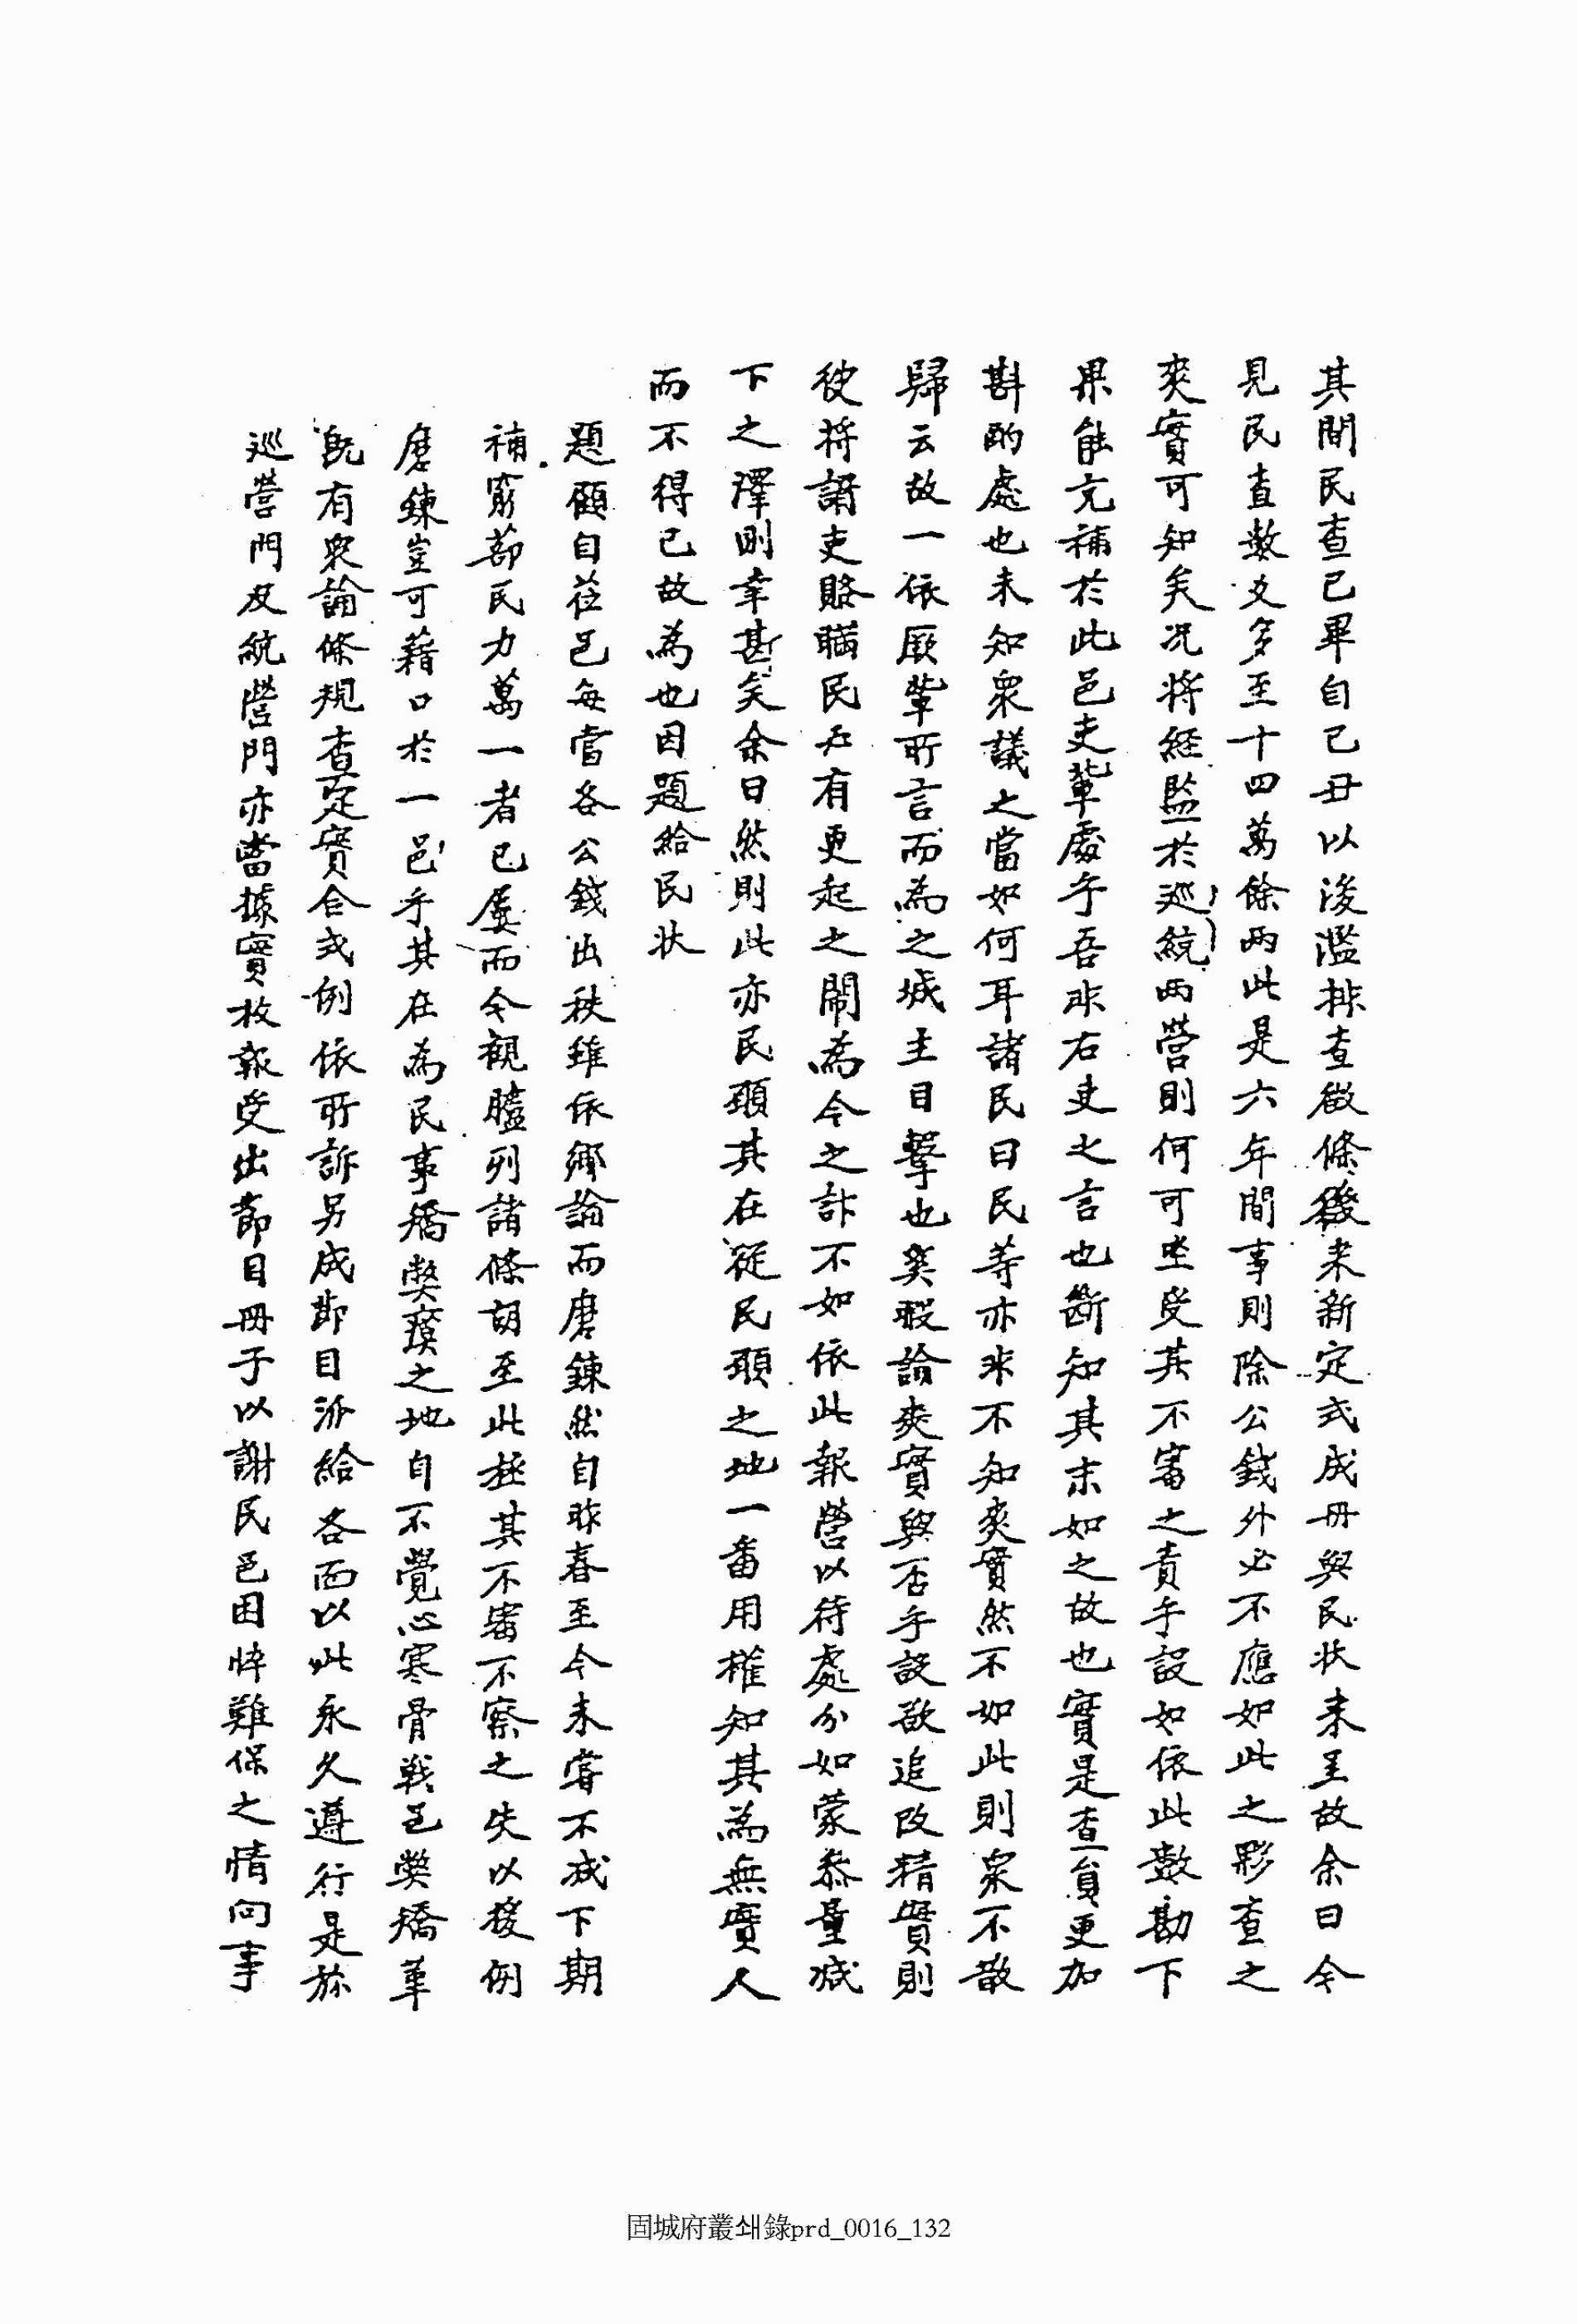 其間民查已畢自己丑以後濫排查徵條後来新定式成冊與民状来呈故余曰今
見民查數爻多至十四萬餘兩此是六年間事則除公錢外必不應如此之夥查之
爽實可知矣况將經監於巡統兩營則何可坐受其不審之責乎設如依此數勘下
果能充補於此邑吏輩處乎吾非右吏之言也斷知其末如之故也實是查員更加
斟酌處也未知衆議之當如何耳諸民曰民等亦非不知爽實然不如此則衆不散
歸云故一依厥輩所言而為之城主目擊也奚暇論爽實與否乎設欲追改精實則
彼將謂吏賂瞞民五有更起之鬧為今之計不如依此報營以待處分如蒙叅量减
下之澤則幸甚矣余曰然則此亦民願其在從民願之地一番用權知其為無實人
而不得已故為也因題給民状
題顧自莅邑每當各公錢出秩雖依鄉論而磨鍊然自昨春至今未嘗不减下期
補窮蔀民力萬一者已屢而今觀臚列諸條胡至此極其不審不察之失以援例
磨鍊豈可藉口於一邑乎其在為民事矯弊瘼之地自不覺心寒骨戰邑弊矯革
既有衆論條規查定實合式例依所訴另成節目派給各面以此永久遵行是旀
巡營門及統營門亦當據實枚報受出節目冊子以謝民邑困悴難保之情向事
固城府叢쇄錄prd_0016_132